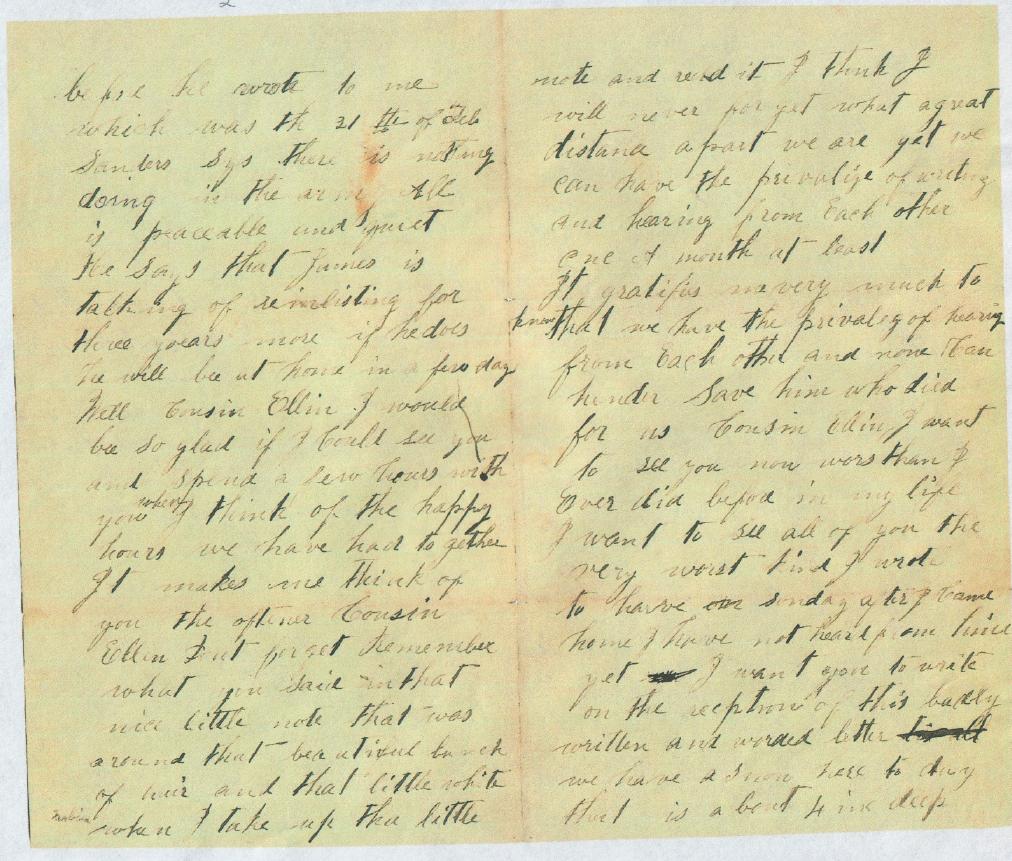 2
before he wrote to me
which was th 21 th of Feb
Sanders Sys there is nothing
doing in the arm All
is peaceable and quiet
He Says that James is
talking of reinlisting for
three years more if he does
he will be at home in a few day
Well Cousin Ellin I would
be so glad if I Could see you
and Spend a few hours with
you when I think of the happy
hours we have had to gether
It makes me think of
you the oftener Cousin
Ellin Dont forget Remember
what you Said in that
nice little note that was
around that beautiful bunch
of hair and that little white
when I take up the little
note and read it I think I
will never forget what a great
distance apart we are yet we
can have the privalige of writing
and hearing from Each other
one A month at least
It gratifis me very much to
know that we have the privaleg of hearing
from Each other and none Can
hender Save him who died
for us Cousin Ellin I want
to see you now wors than I
Ever did before in my life
I want to see all of you the
very worst kind I wrote
to on sunday after I Came
home I have not heard from
yet I want you to write
on the reception of this badly
written and worded letter
we have a Snow here to day
that is about 4 in deep